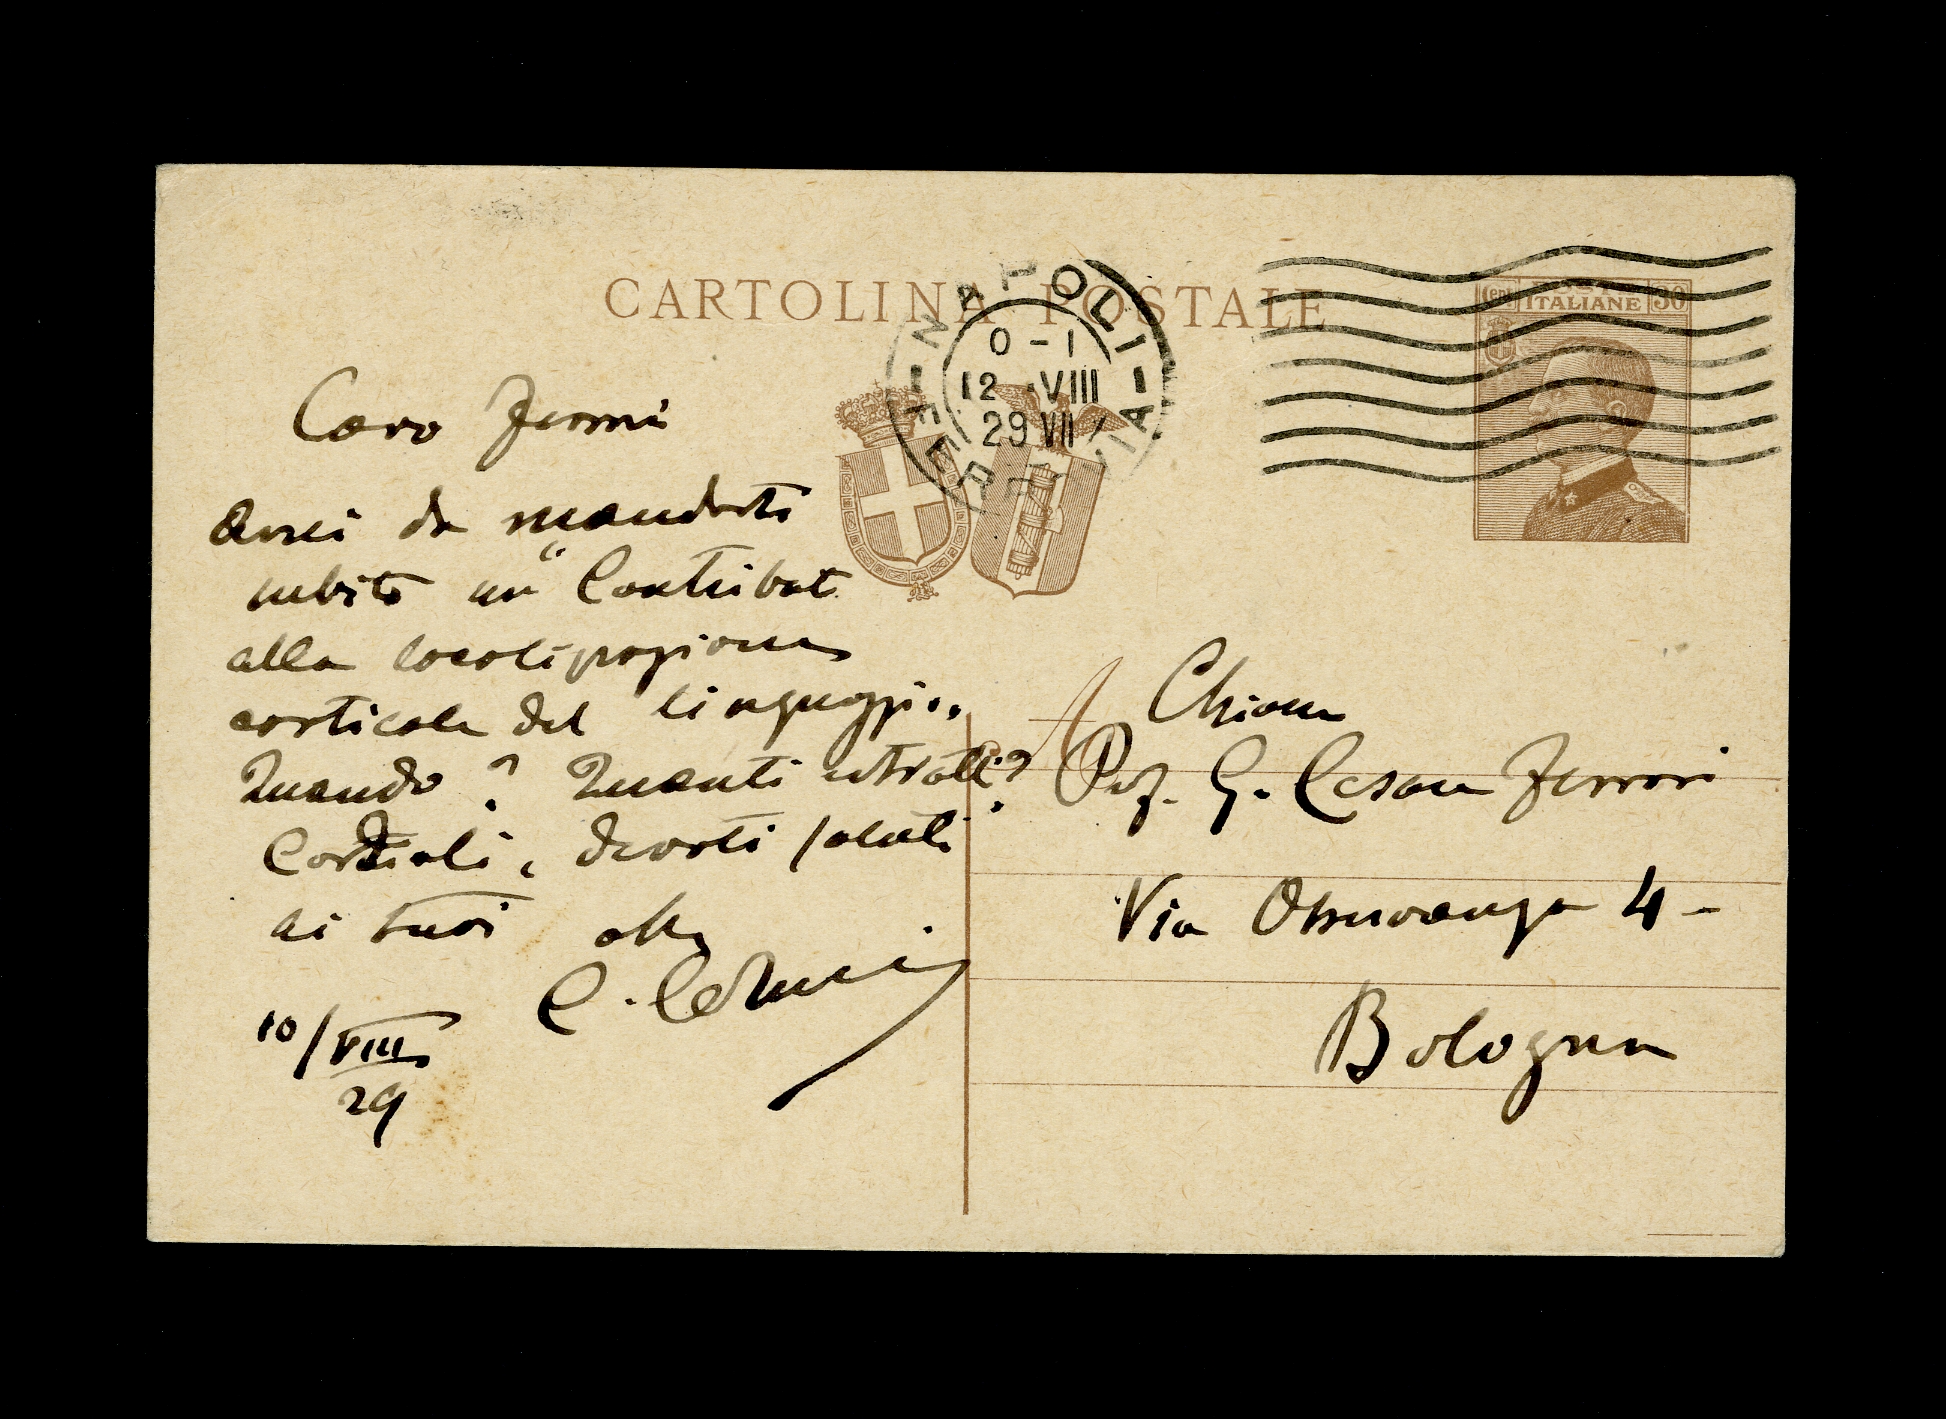 CARTOLINA POSTALE
NAPOLI
0-1
12 VIII
29 VII
FERROVIA
Cent
POSTE
ITALIANE
30
Caro Ferrari
Avrei da mandarti
subito un "Contributo
alla localizzazione
corticale del linguaggio"
Quando? Quanti estratti?
Cordiali, devoti saluti
ai tuoi
10/VIII
29
A
Prof. G. Cesare Ferrari
Via Osservanza 4 -
Bologna